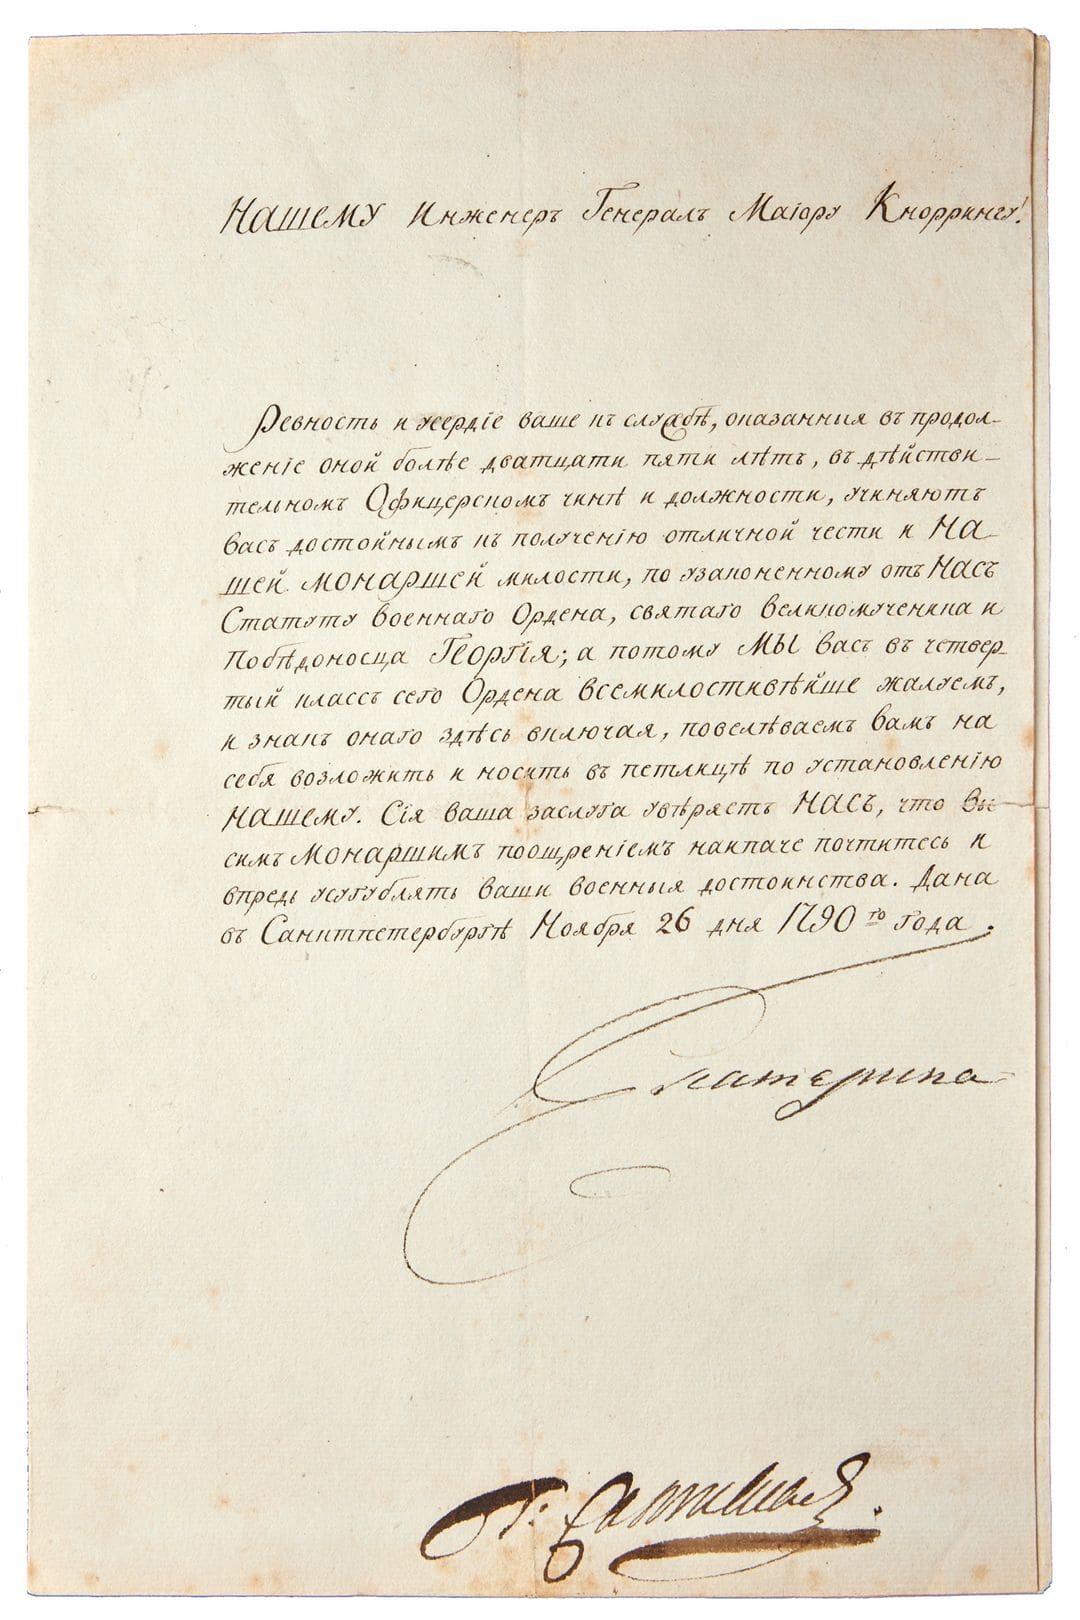 НАШЕМУ Инженеръ Генералъ Маіору Кноррингу!
Ревность и усердіе ваше къ службѣ, оказанныя въ продол-
женіе оной болѣе дватцати пяти лѣтъ, въ дѣйстви-
тельномъ Офицерскомъ чинѣ и должности, учиняютъ
васъ достойнымъ къ полученію отличной чести и НА-
ШЕЙ МОНАРШЕЙ милости, по узаконенному отъ НАСЪ
Статуту военнаго Ордена, святаго великомученика и
Побѣдоносца ГЕОРГІЯ; а потому МЫ васъ въ четвер-
тый классъ сего Ордена всемилостивѣйше жалуемъ,
и знакъ онаго здѣсь включая, повелѣваемъ вамъ на
себя возложить и носить въ петлицѣ по установленію
НАШЕМУ. Сія ваша заслуга увѣряетъ НАСЪ, что вы
симъ МОНАРШИМЪ поощреніемъ наипаче почтитесь и
впредь усугублять ваши военныя достоинства. Дана
въ Санктпетербургѣ Ноября 26 дня 1790го года.
Екатерина